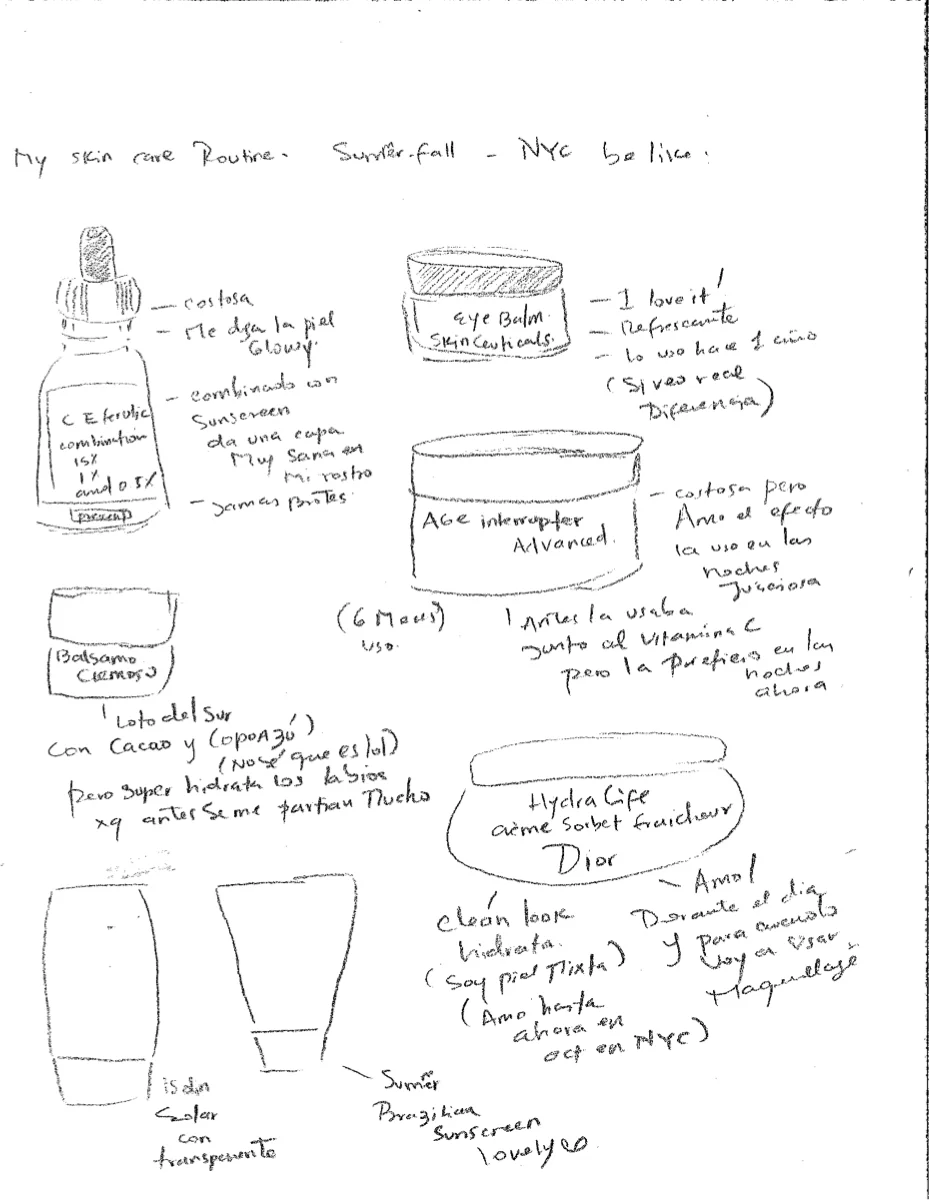 My skin care Routine. Summer-fall - NYC be like:
C E ferulic
combination
15%
1%
and 0 5%
- costosa
- Me deja la piel
Glowy.
- combinado con
Sunscreen
da una capa
Muy Sana en
Mi rostro
- Jamas Brotes.
Eye Balm.
Skinceuticals.
- I love it!
- Refrescante
- lo uso hace 1 año
(Si veo real
Diferencia)
AGE interrupter
Advanced.
- costosa pero
Amo el efecto
la uso en las
noches
Juiciosa
(6 Meses)
uso.
Antes la usaba
junto al Vitamina C
pero la prefiero en las
noches
ahora
Balsamo
Cremoso
Loto del Sur
Con Cacao y (opoAzú)
(No sé que es lol)
pero super hidrata los labios
xq antes se me partian Mucho
Hydra Life
crème Sorbet fraicheur
Dior
clean look
hidrata.
(Soy piel Mixta)
(Amo hasta
ahora en
oct en NYC)
- Amo!
Durante el dia
y para cuando
voy a usar
Maquillaje
isdin
Solar
con
- Summer
Brazilian
Sunscreen
lovely